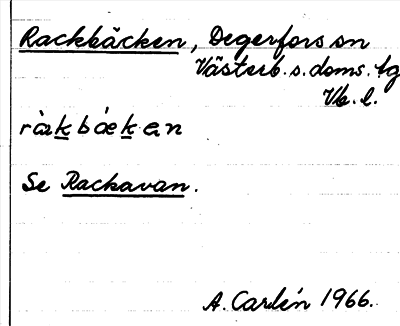 Rackbäcken, Degerfors sn
Västerb. s. doms. tg
Vb. l.
ràkbækan
Se Rackavan.
A. Carlén 1966.